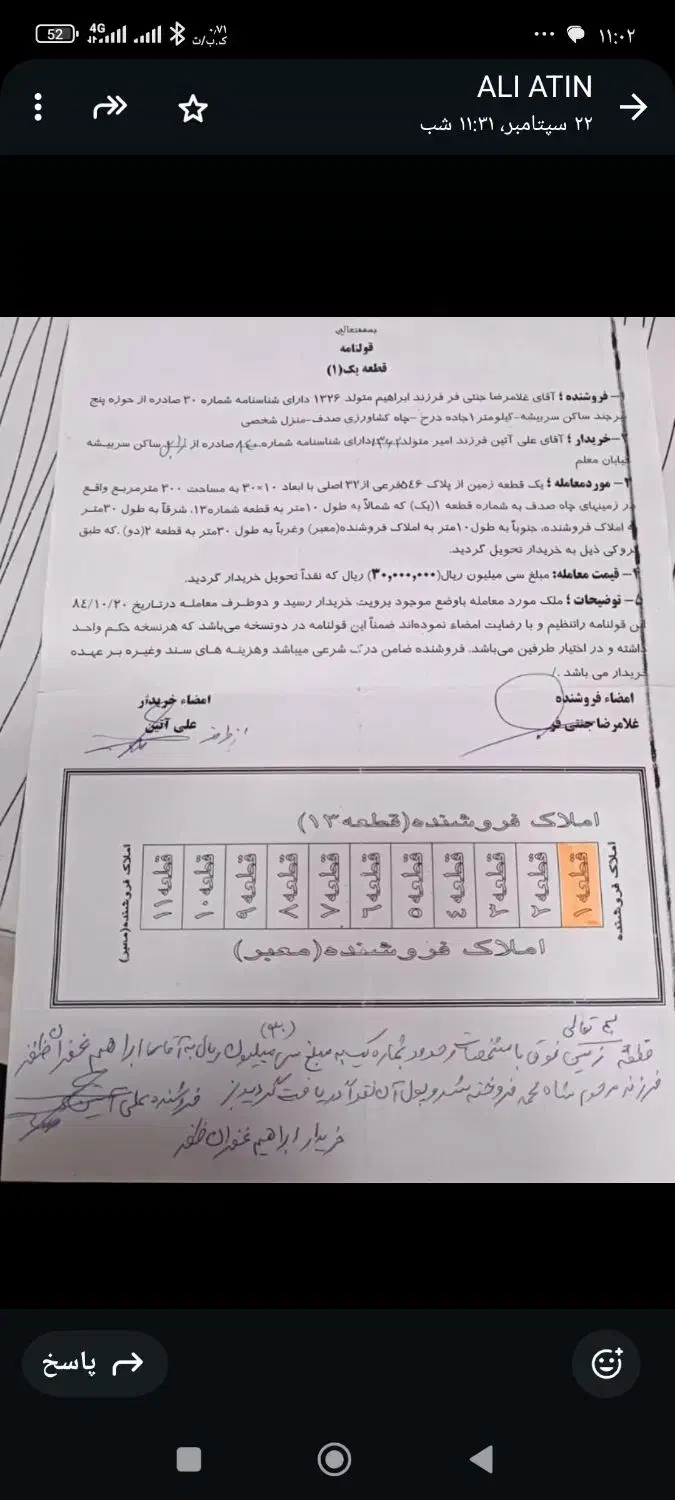 52 4G ۰٫۷۱ ک.ب/ث ... ۱۱:۰۲
ALI ATIN
۲۲ سپتامبر، ۱۱:۳۱ شب
بسمه‌تعالی
قولنامه
قطعه یک(۱)
۱– فروشنده : آقای غلامرضا جنتی فر فرزند ابراهیم متولد ۱۳۲۶ دارای شناسنامه شماره ۳۰ صادره از حوزه پنج
بیرجند ساکن سربیشه-کیلومتر ۱جاده درح –چاه کشاورزی صدف-منزل شخصی
۲–خریدار : آقای علی آتین فرزند امیر متولد دارای شناسنامه شماره صادره از ساکن سربیشه
خیابان معلم
۳– موردمعامله : یک قطعه زمین از پلاک ۵۴۶فرعی از۳۲ اصلی با ابعاد ۱۰×۳۰ به مساحت ۳۰۰ مترمربع واقع
در زمینهای چاه صدف به شماره قطعه ۱(یک) که شمالاً به طول ۱۰متر به قطعه شماره۱۳، شرقاً به طول ۳۰متر
به املاک فروشنده، جنوباً به طول۱۰متر به املاک فروشنده(معبر) وغرباً به طول ۳۰متر به قطعه ۲(دو) .که طبق
کروکی ذیل به خریدار تحویل گردید.
۴– قیمت معامله: مبلغ سی میلیون ریال(۳۰,۰۰۰,۰۰۰) ریال که نقداً تحویل خریدار گردید.
۵– توضیحات : ملک مورد معامله باوضع موجود برویت خریدار رسید و دوطرف معامله درتاریخ ۸۴/۱۰/۲۰
این قولنامه راتنظیم و با رضایت امضاء نموده‌اند ضمناً این قولنامه در دونسخه می‌باشد که هرنسخه حکم واحد
داشته و در اختیار طرفین می‌باشد. فروشنده ضامن درک شرعی میباشد وهزینه های سند وغیره بر عهده
خریدار می باشد ./
امضاء فروشنده امضاء خریدار
غلامرضا جنتی فر علی آتین
املاک فروشنده(قطعه۱۳)
املاک فروشنده
قطعه۱ قطعه۲ قطعه۳ قطعه۴ قطعه۵ قطعه۶ قطعه۷ قطعه۸ قطعه۹ قطعه۱۰ قطعه۱۱
املاک فروشنده(معبر)
املاک فروشنده(معبر)
بسمه تعالی
(۳۰)
قطعه زمین فوق با مشخصات و حدود شماره یک به مبلغ سی میلیون ریال به آقای ابراهیم غفران ظفر
فرزند مرحوم فروخته شد و پول آن نقداً دریافت گردید. فروشنده علی آتین
خریدار ابراهیم غفران ظفر
پاسخ